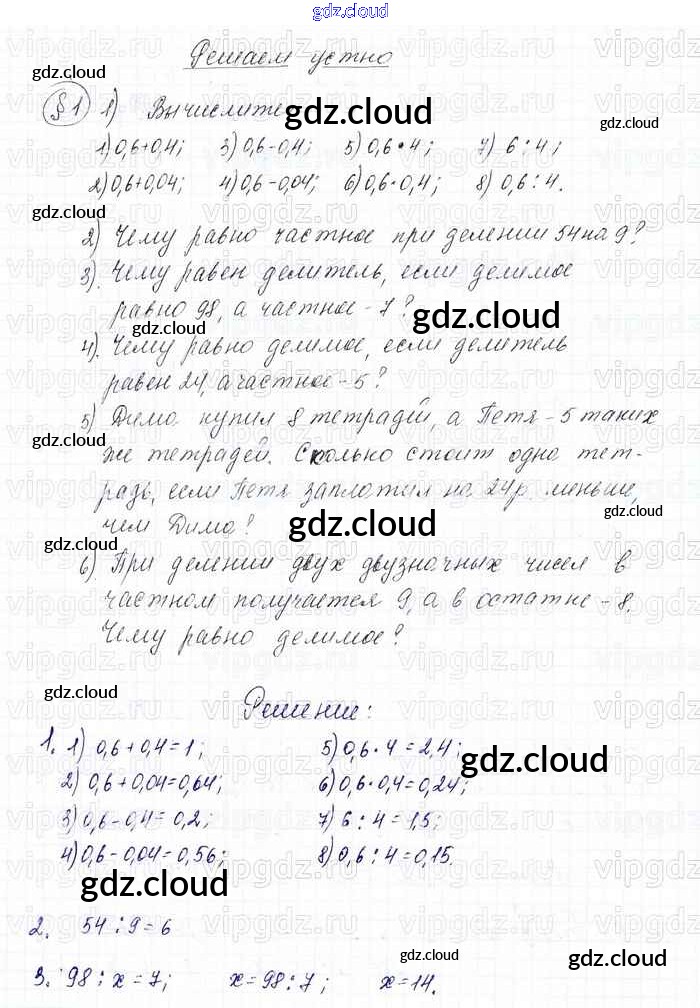 gdz.cloud
Решаем устно
gdz.cloud
§1 1) Вычислите
gdz.cloud
1) 0,6+0,4; 3) 0,6-0,4; 5) 0,6•4; 7) 6:4;
2) 0,6+0,04; 4) 0,6-0,04; 6) 0,6•0,4; 8) 0,6:4.
gdz.cloud
2) Чему равно частное при делении 54 на 9?
3). Чему равен делитель, если делимое
равно 98, а частное - 7?
gdz.cloud
gdz.cloud
4). Чему равно делимое, если делитель
равен 24, а частное - 5?
5) Дима купил 8 тетрадей, а Петя - 5 таких
gdz.cloud
же тетрадей. Сколько стоит одна тет-
радь, если Петя заплатил на 24 р. меньше,
gdz.cloud
чем Дима?
gdz.cloud
gdz.cloud
6). При делении двух двузначных чисел в
частном получается 9, а в остатке - 8.
Чему равно делимое?
gdz.cloud
Решение:
1. 1) 0,6+0,4=1; 5) 0,6•4=2,4;
gdz.cloud
2) 0,6+0,04=0,64; 6) 0,6•0,4=0,24;
3) 0,6-0,4=0,2; 7) 6:4=1,5;
4) 0,6-0,04=0,56; 8) 0,6:4=0,15.
gdz.cloud
2. 54:9=6
gdz.cloud
3. 98:x=7; x=98:7; x=14.
gdz.cloud